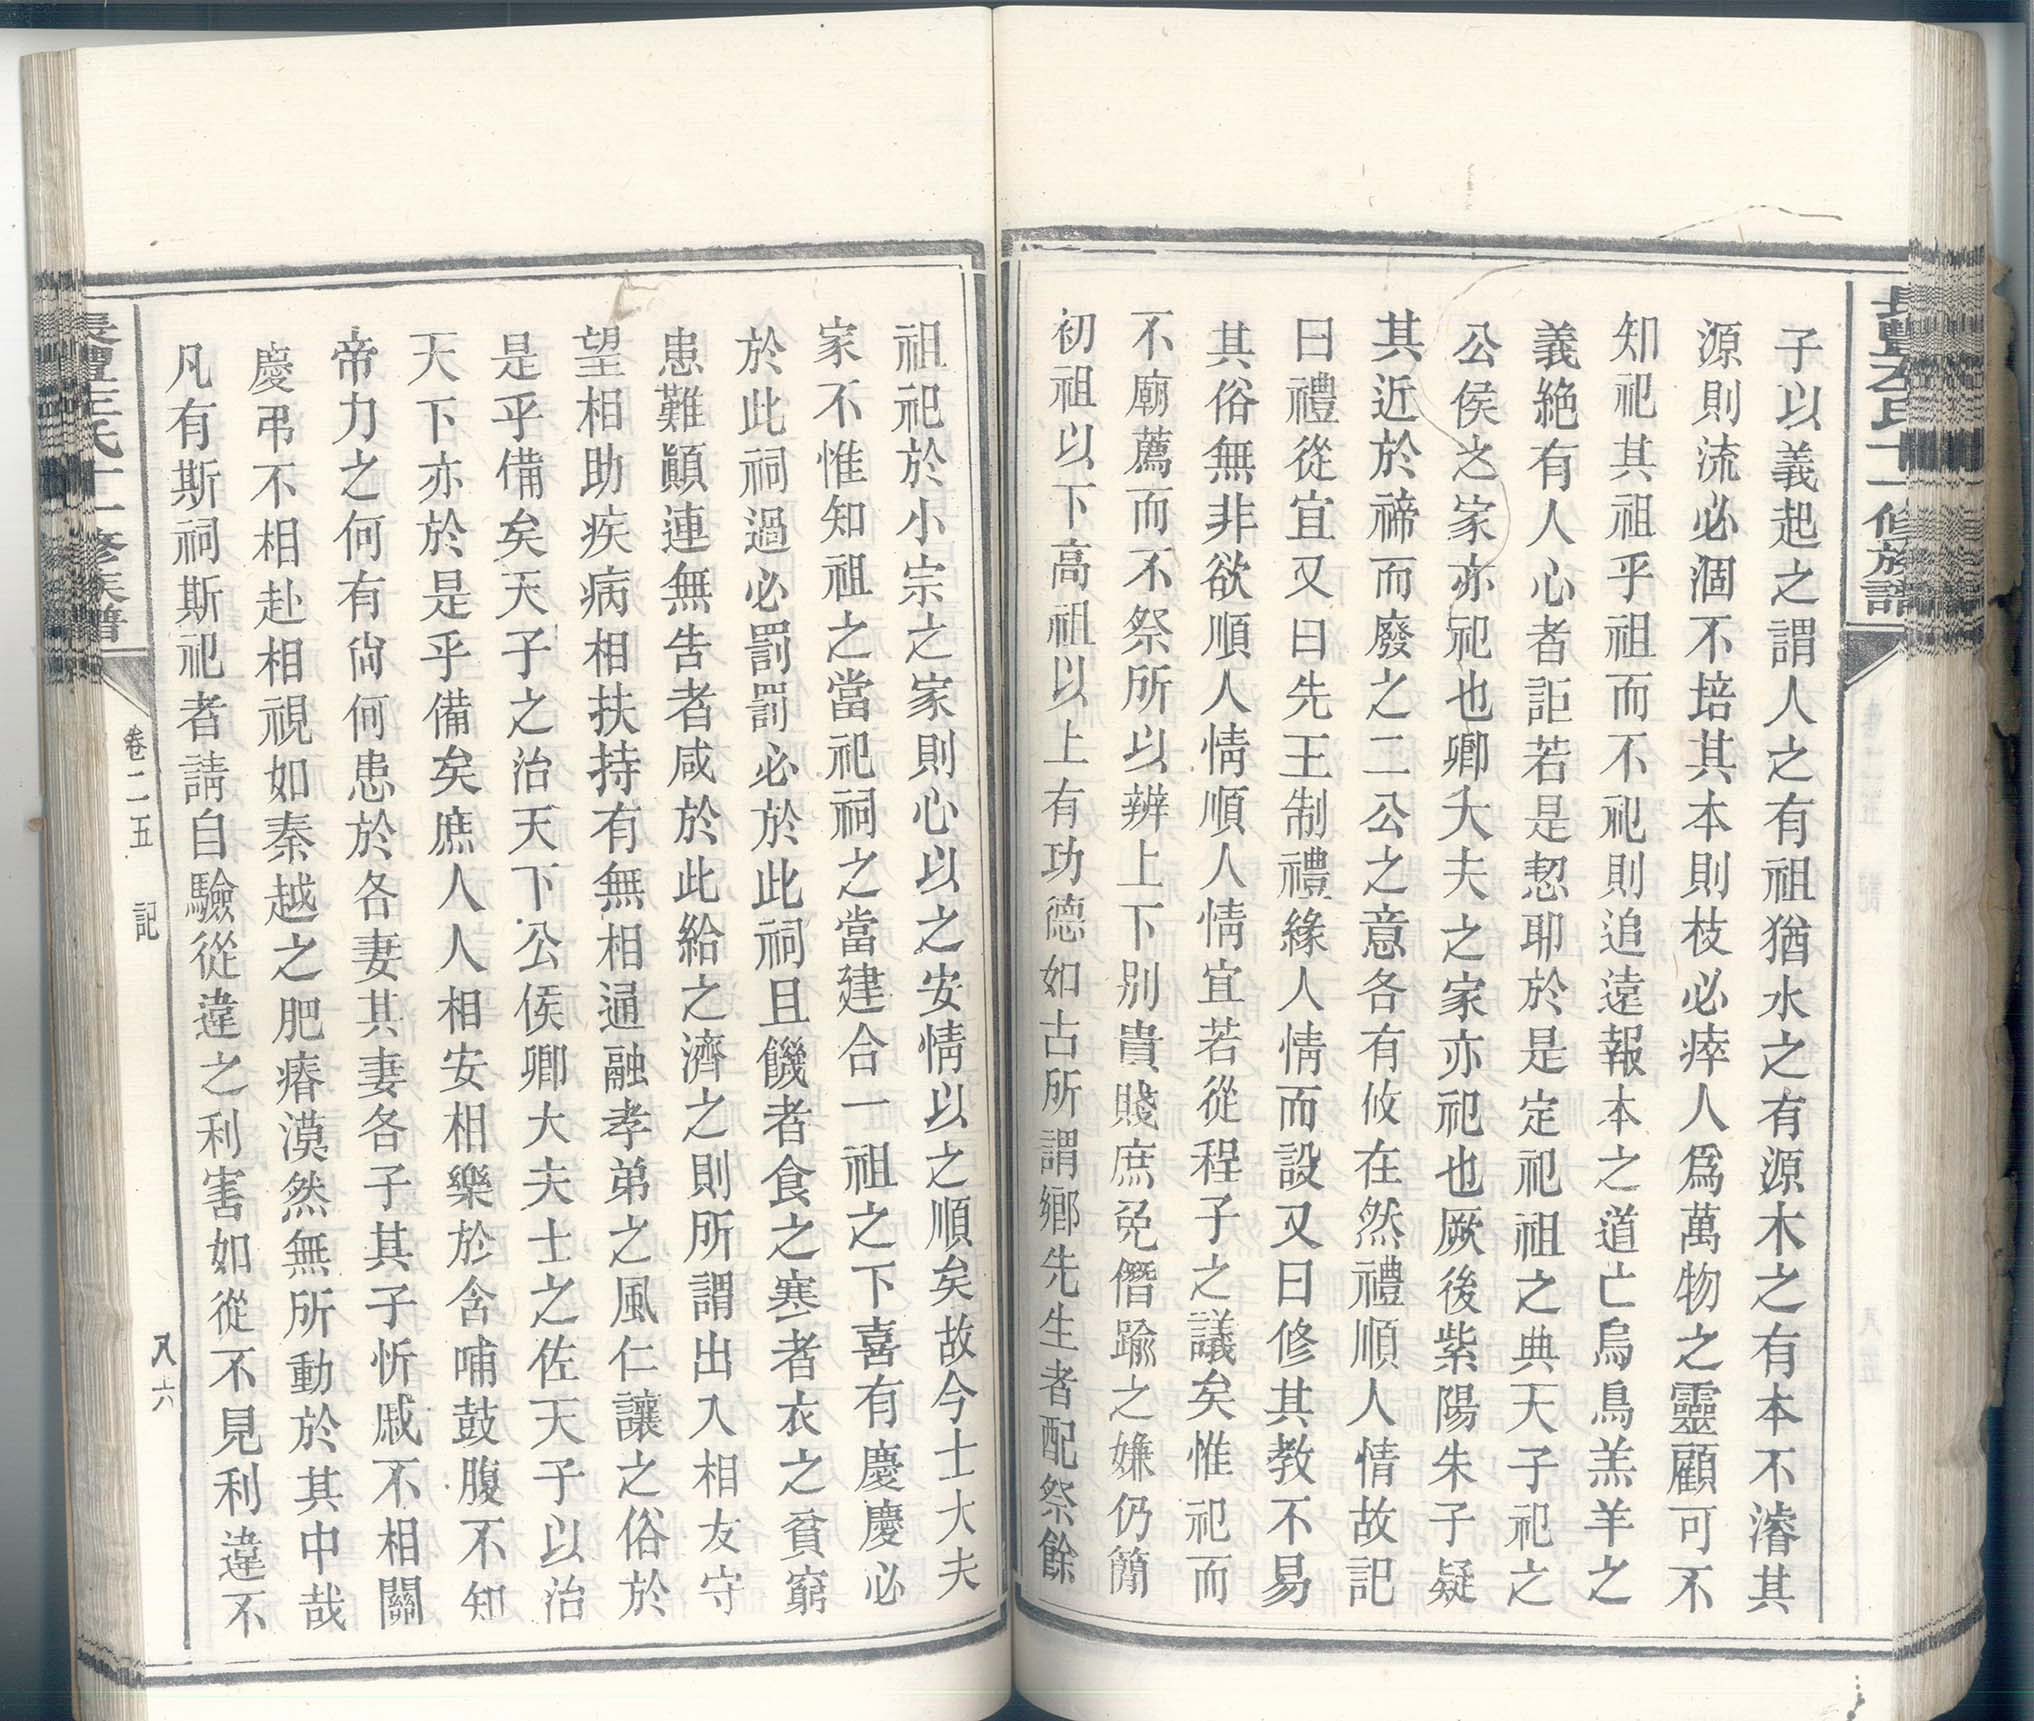 長豐左氏十一修族譜
子以義起之謂人之有祖猶水之有源木之有本不濬其
源則流必涸不培其本則枝必瘁人爲萬物之靈顧可不
知祀其祖乎祖而不祀則追遠報本之道亡烏鳥羔羊之
義絶有人心者詎若是恝耶於是定祀祖之典天子祀之
公侯之家亦祀也卿大夫之家亦祀也厥後紫陽朱子疑
其近於禘而廢之二公之意各有攸在然禮順人情故記
曰禮從宜又曰先王制禮緣人情而設又曰修其教不易
其俗無非欲順人情順人情宜若從程子之議矣惟祀而
不廟薦而不祭所以辨上下別貴賤庶免僭踰之嫌仍簡
初祖以下高祖以上有功德如古所謂鄉先生者配祭餘
祖祀於小宗之家則心以之安情以之順矣故今士大夫
家不惟知祖之當祀祠之當建合一祖之下喜有慶慶必
於此祠過必罰罰必於此祠且饑者食之寒者衣之貧窮
患難顛連無告者咸於此給之濟之則所謂出入相友守
望相助疾病相扶持有無相通融孝弟之風仁讓之俗於
是乎備矣天子之治天下公侯卿大夫士之佐天子以治
天下亦於是乎備矣庶人人相安相樂於含哺鼓腹不知
帝力之何有尙何患於各妻其妻各子其子忻戚不相關
慶弔不相赴相視如秦越之肥瘠漠然無所動於其中哉
凡有斯祠斯祀者請自驗從違之利害如從不見利違不
長豐左氏十一修族譜
卷二五
記
八六